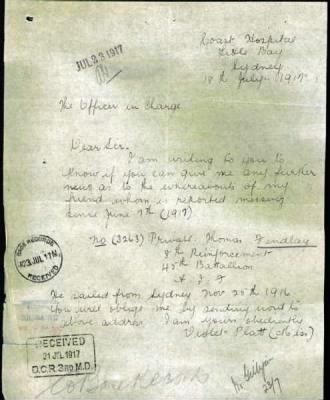 JUL 23 1917
Coast Hospital
Little Bay
Sydney
18th July 1917
The Officer in Charge
Dear Sir.
I am writing to you to
know if you can give me any further
news as to the whereabouts of my
friend whom is reported missing
since June 7th (1917)
No (3263) Private. Thomas Findlay
8th Reinforcement
45th Battallion
A. I. F
He sailed from Sydney Nov 25th 1916
You will oblige me by sending word to
above address I am yours obediently
Violet Platt (Miss)
BASE RECORDS
23 JUL 17
RECEIVED
RECEIVED
21 JUL 1917
D.O.R. 2ND M.D.
Base Records
23/7